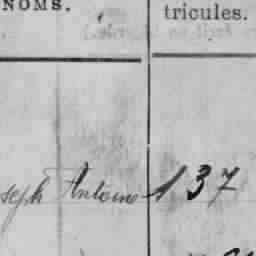 NOMS.
tricules.
seph Antoine 137